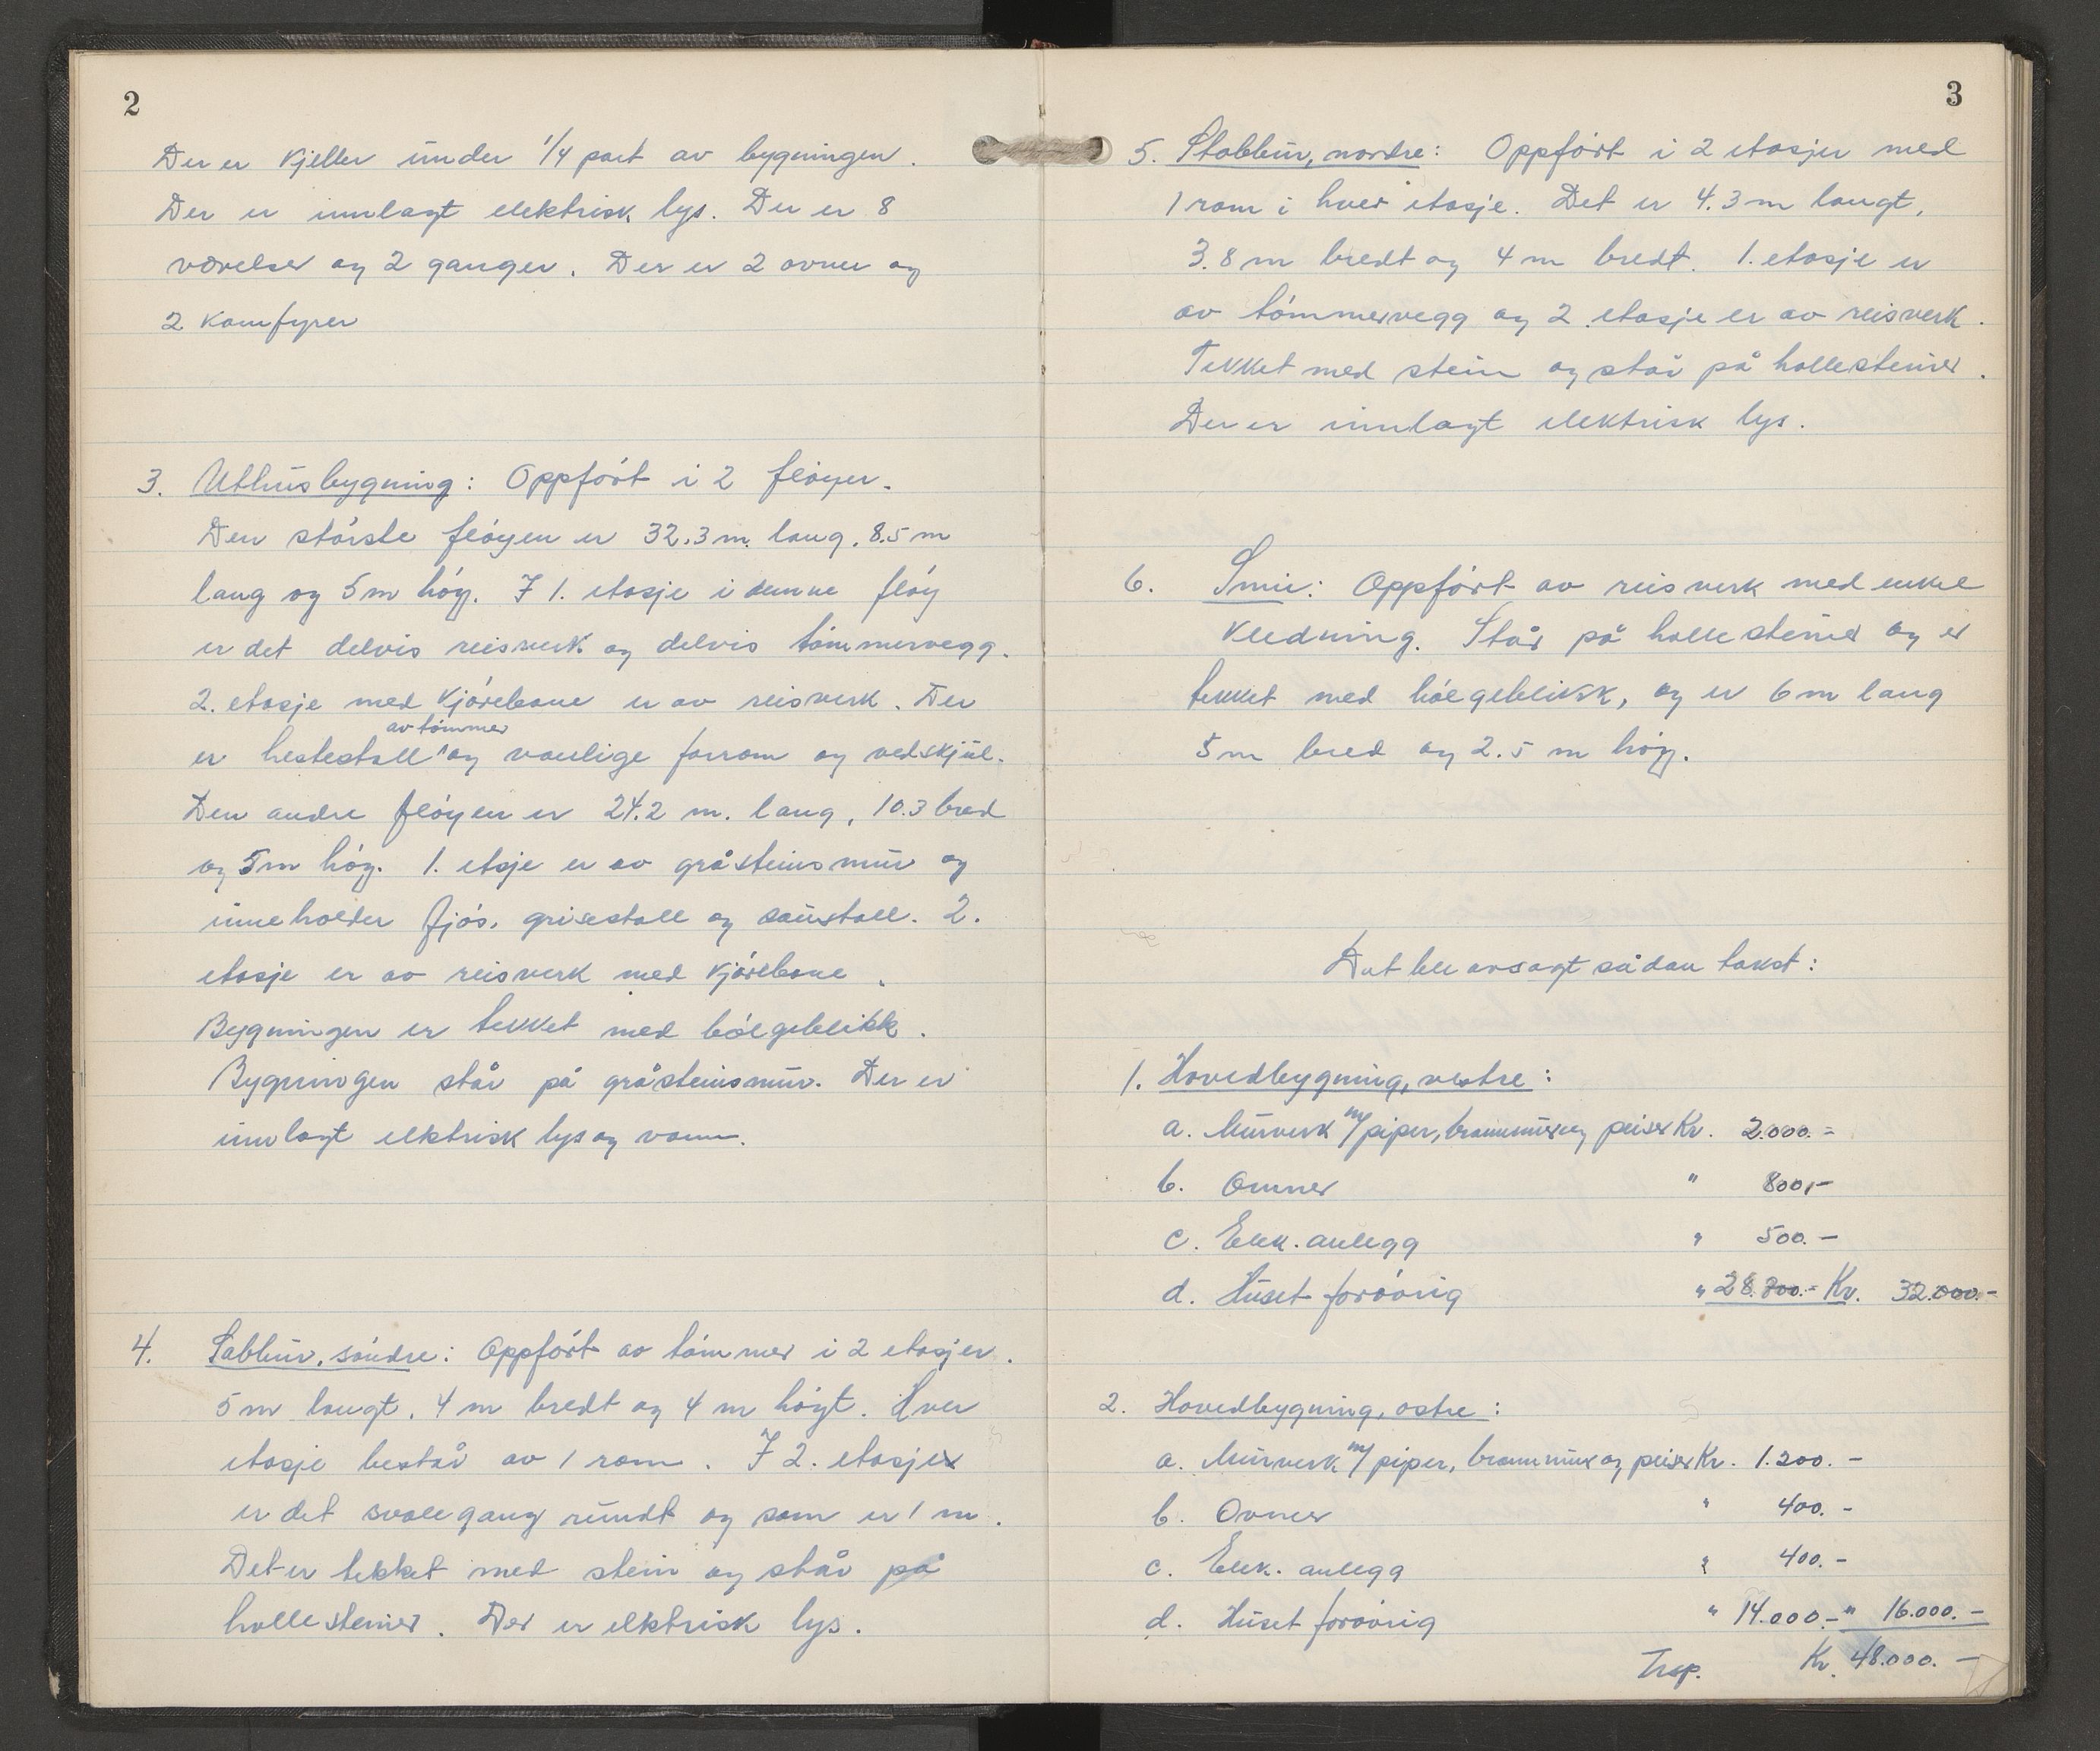 2
Der er kjeller under 1/4 part av bygningen.
Der er innlagt elektrisk lys. Der er 8
værelser og 2 ganger. Der er 2 ovner og
2 komfyrer
3. Uthusbygning: Oppført i 2 fløyer.
Den største fløyen er 32.3 m. lang, 8.5 m
lang og 5 m høg. I 1. etasje i denne fløy
er det delvis reisverk og delvis tømmervegg.
2. etasje med kjørebane er av reisverk. Der
av tømmer
er hestestall og vanlige forrom og vedskjul.
Den andre fløyen er 24.2 m. lang, 10.3 bred
og 5 m høg. 1. etsje er av gråsteinsmur og
inneholder fjøs, grisestall og saustall. 2.
etasje er av reisverk med kjørebane.
Bygningen er tekket med bølgeblikk.
Bygningen står på gråsteinsmur. Der er
innlagt elktrisk lys og vann.
4. Sabbur, søndre: Oppført av tømmer i 2 etasjer.
5 m langt, 4 m bredt og 4 m høgt. Hver
etasje består av 1 rom. I 2. etasjex
er det svalegang rundt og som er 1 m.
Det er tekket med stein og står på
hellesteiner. Der er elktrisk lys.
3
5. Stabbur, nordre: Oppført i 2 etasjer med
1 rom i hver etasje. Det er 4.3 m langt,
3.8 m bredt og 4 m bredt. 1. etasje er
av tømmervegg og 2. etasje er av reisverk.
Tekket med stein og står på hellesteiner.
Der er innlagt elektrisk lys.
6. Smie: Oppført av reisverk med enkel
kledning. Står på hellesteiner og er
tekket med bølgeblikk, og er 6 m lang
5 m bred og 2.5 m høg.
Det ble avsagt sådan takst:
1. Hovedbygning, vestre:
a. Murverk m/ piper, brannmur og peiser Kr. 2.000.=
b. Omner " 800,-
c. Elek. anlegg " 500.-
d. Huset forøvrig " 28.700.- Kr. 32.000.-
2. Hovedbygning, østre:
a. Murverk m/ piper, brannmur og peiser Kr. 1.200.-
b. Ovner " 400.-
c. Elek. anlegg " 400.-
d. Huset forøvrig " 14.000.- " 16.000.-
Trsp. Kr. 48.000.-